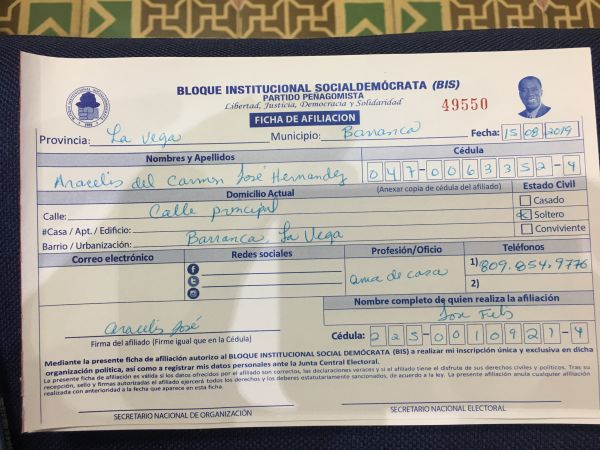 BLOQUE INSTITUCIONAL SOCIALDEMÓCRATA (BIS)
PARTIDO PEÑAGOMISTA
Libertad, Justicia, Democracia y Solidaridad
49550
FICHA DE AFILIACION
Provincia: La Vega Municipio: Barranca Fecha: 15 08 2019
Nombres y Apellidos Cédula
Aracelis del Carmen José Hernandez 047-0063352-4
Domicilio Actual (Anexar copia de cédula del afiliado) Estado Civil
Calle: Calle principal Casado
#Casa / Apt. / Edificio: Soltero
Barrio / Urbanización: Barranca, La Vega Conviviente
Correo electrónico Redes sociales Profesión/Oficio Teléfonos
ama de casa 1) 809.854.9776
2)
Nombre completo de quien realiza la afiliación
Aracelis José
Firma del afiliado (Firme igual que en la Cédula) Cédula: 225-0010921-4
Mediante la presente ficha de afiliación autorizo al BLOQUE INSTITUCIONAL SOCIAL DEMÓCRATA (BIS) a realizar mi inscripción única y exclusiva en dicha
organización política, así como a registrar mis datos personales ante la Junta Central Electoral.
La presente ficha de afiliación es válida si los datos ofrecidos por el afiliado son correctos, las declaraciones veraces y si el afiliado tiene el disfrute de sus derechos civiles y políticos. Tras su
recepción, sello y firmas autorizadas el afiliado ejercerá todos los derechos y los deberes estatutariamente sancionados, de acuerdo a la ley. La presente afiliación anula cualquier afiliación
realizada con anterioridad a la fecha que aparece en esta ficha.
SECRETARIO NACIONAL DE ORGANIZACIÓN SECRETARIO NACIONAL ELECTORAL